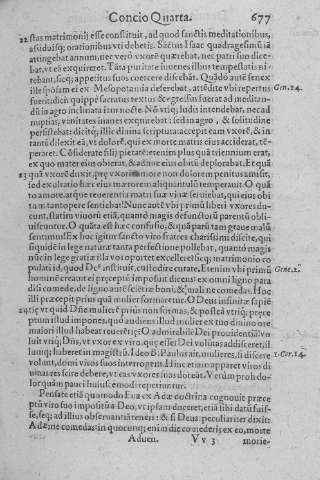 Concio Quarta. 677
22 stas matrimonij esse constituit, ad quod sanctis meditationibus,
assiduisq; orationibus vti debetis. Sāctus Isaac quadragesimū iā
attingebat annum, nec verò vxorē quærebat, nec patri suo dice-
bat, vt eā exquireret. Tāta puritate iuuenes illius tempestatis ni-
tebant, sicq; appetitus suos coercere discebāt. Quādo autē senex
ille sposam ei ex Mesopotamia deferebat, attēdite vbi repertus
Gen. 24.
fuerit
dū in agro inclinata iam nocte. Nō vtiq; ludis intendebat, nec ad
nuptias, vanitates inanes exquirebat: sed in agro, & solitudine
persistebat: dicitq; illic diuina scriptura accepit eam vxorē, & in
tantū dilexit eā, vt dolorē, qui ex morte matris eius acciderat, tē-
peraret. Cōsiderate filij pietatē: etenim plus quā triennium erat,
ex quo mater eius obierat, & adhuc eius obitū deplorabat. Et quā
23 quā vxorē duxit, præ vxoris amore non dolorem penitus amisit,
sed exultatio hæc eius mœrorem aliquantulū temperauit. O quā-
to amore, atque reuerentia matri suæ viuæ seruiebat, qui eius obi-
tū tam tanto pere sentiebat! Nunc autē vbi primū liberi vxores du-
cunt, statim viuorū etiā, quantò magis defunctorū parentū obli-
uiscuntur. O quāta est hæc confusio, & quā parū tam graue malū
sentimus! Ex hoc igitur sancto viro fratres charissimi discite, qui
siquidē in lege naturæ tanta perfectione pollebat, quantò magis
nūc in lege gratiæ illa vos oportet excellere? sicq; matrimonio co-
pulati id, quod Deus instituit, custodire curate. Etenim vbi primū
Gene. 2.
hominē creauit ei præceptū imposuit dicens: ex omni ligno para-
disi comede, de ligno autē scientiæ boni, & mali ne comedas. Hoc
illi præcepit prius quā mulier formaretur. O Deus infinitæ sapiē-
24 tiæ, vt quid Dñe mulierē prius non formas, & postea vtriq; præce-
ptum istud impones, quò audiens illud mulier ex tuo diuino ore
maiori illud habeat reuerētia? O admirabilē Dei prouidentiā! Vo-
luit vtiq; Dñs, vt vxor ex viro, quę essei Dei voluntas addisceret, il-
lumq; haberet in magistrū. Ideo B. Paulus ait, mulieres, si discere
1. Cor. 14.
volunt, domi viros suos interrogent. Hinc etiam apparet viros di-
uinas res scire debere, vt eas vxores suos doceāt. Verùm proh do-
lor quàm pauci huiuscemodi reperiuntur.
Pensate etiā quomodo Eua ex Adæ doctrina cognouit præce
ptū viro suo impositū à Deo, vt ipsam doceret, etiā sibi datū fuis-
se, seq; ad illius obseruantiā teneri: & si Deus peculiariter dixit:
Adæ ne comedas: in quocunq; enim die comederis ex eo, morte
Aduen. V v 3 morie-